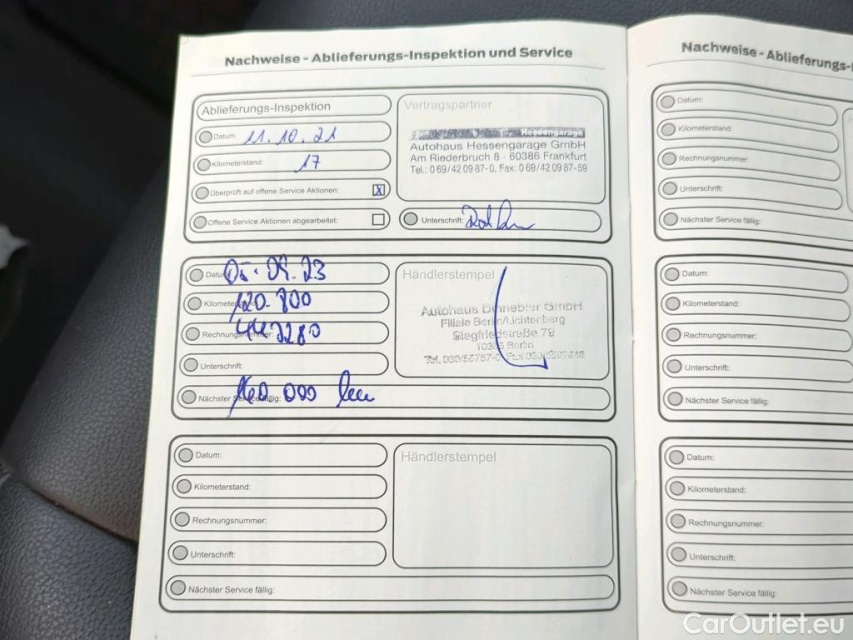 Nachweise - Ablieferungs-Inspektion und Service
Ablieferungs-Inspektion
Datum: 11.10.21
Kilometerstand: 17
Überprüft auf offene Service Aktionen: X
Offene Service Aktionen abgearbeitet:
Vertragspartner
Hessengarage
Autohaus Hessengarage GmbH
Am Riederbruch 8 · 60386 Frankfurt
Tel.: 0 69/42 09 87-0, Fax: 0 69/42 09 87-59
Unterschrift:
Datum: 05.09.23
120.800
Rechnungsnummer:
Unterschrift:
Nächster Service fällig: 160 000 km
Händlerstempel
Autohaus Dinnebier GmbH
Filiale Berlin/Lichtenberg
Siegfriedstraße 79
Berlin
Datum:
Kilometerstand:
Rechnungsnummer:
Unterschrift:
Nächster Service fällig:
Händlerstempel
Nachweise - Ablieferungs-
Datum:
Kilometerstand:
Rechnungsnummer:
Unterschrift:
Nächster Service fällig:
Datum:
Kilometerstand:
Rechnungsnummer:
Unterschrift:
Nächster Service fällig:
Datum:
Kilometerstand:
Rechnungsnummer:
Unterschrift:
Nächster Service fällig:
CarOutlet.eu